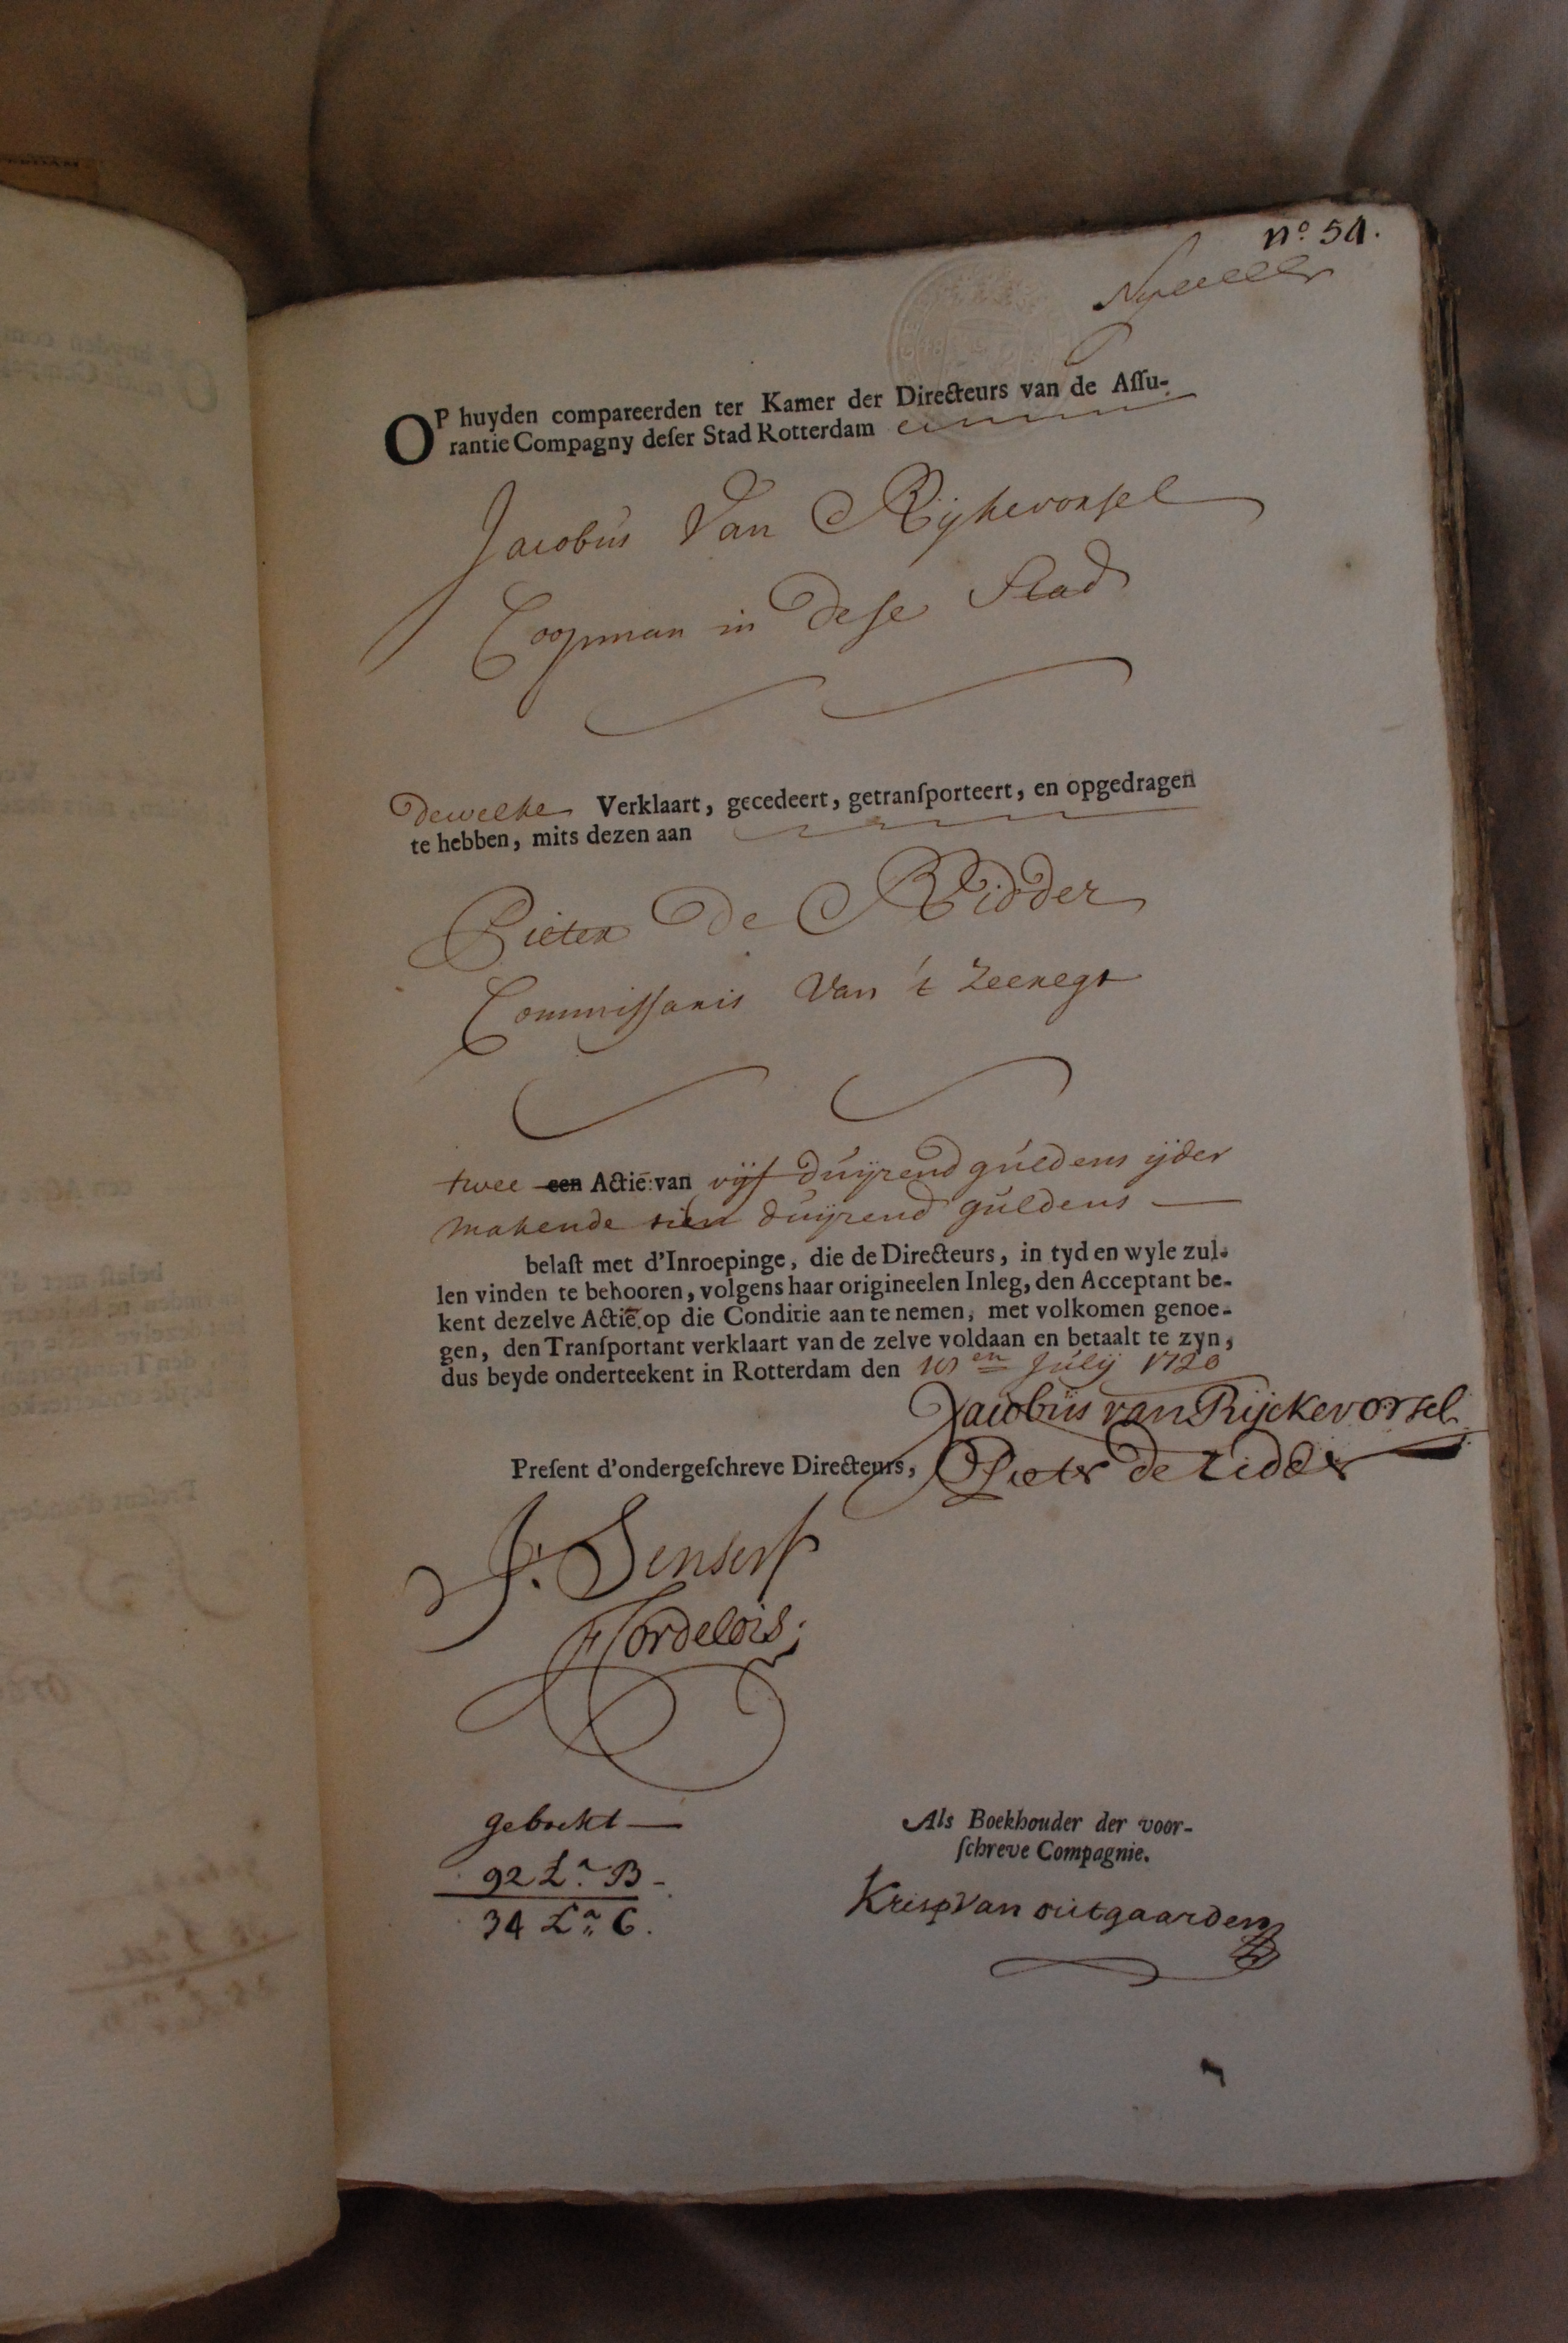 nº 54.
OP huyden compareerden ter Kamer der Directeurs van de Assu-
rantie Compagny deser Stad Rotterdam
Jacobus Van Rijkevorsel
Coopman in dese Stad
dewelke Verklaart, gecedeert, getransporteert, en opgedragen
te hebben, mits dezen aan
Pieter de Ridder
Commissaris Van 't Zeeregt
twee een Actie: van vijf duijzend guldens ijder
makende tien duijzend guldens
belast met d'Inroepinge, die de Directeurs, in tyd en wyle zul-
len vinden te behooren, volgens haar origineelen Inleg, den Acceptant be-
kent dezelve Actie op die Conditie aan te nemen, met volkomen genoe-
gen, den Transportant verklaart van de zelve voldaan en betaalt te zyn,
dus beyde onderteekent in Rotterdam den July 1720
Jacobus van Rijckevorsel
Present d'ondergeschreve Directeurs, Pieter de Ridder
J. Senserf
Cordelois
geboekt
92 La B
34 La C.
Als Boekhouder der voor-
schreve Compagnie.
Krisp Van outgaarden